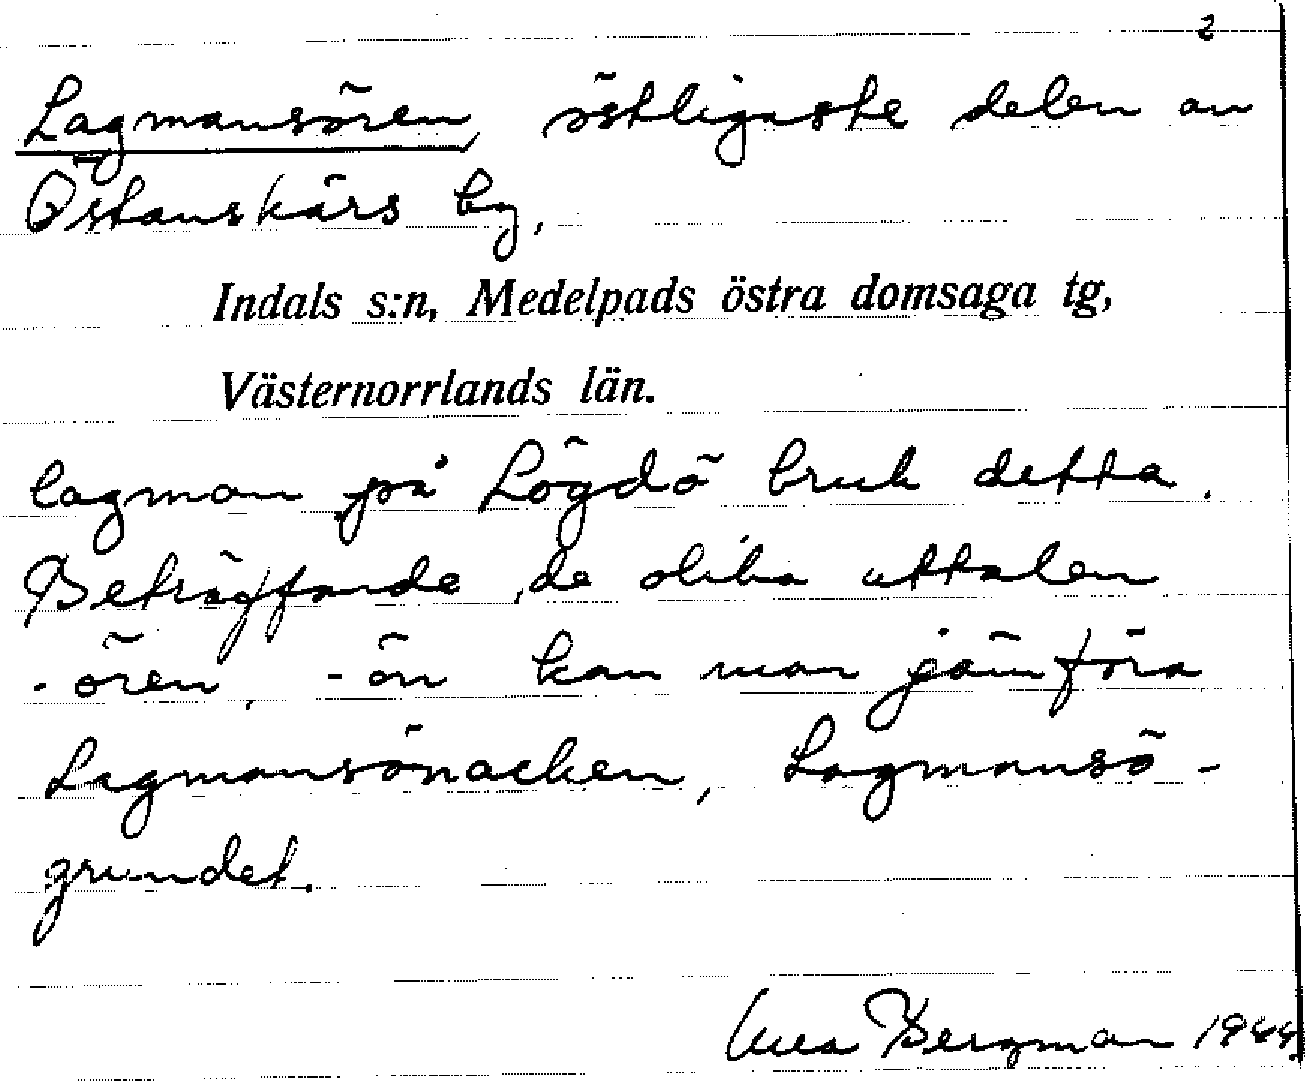 2
Lagmansören, östligaste delen av
Östanskärs by,
Indals s:n, Medelpads östra domsaga tg,
Västernorrlands län.
lagman på Lögdö bruk detta.
Beträffande de olika uttalen
-ören, -ön kan man jämföra
Lagmansönacken, Lagmansö-
grundet.
Bergman 1944.